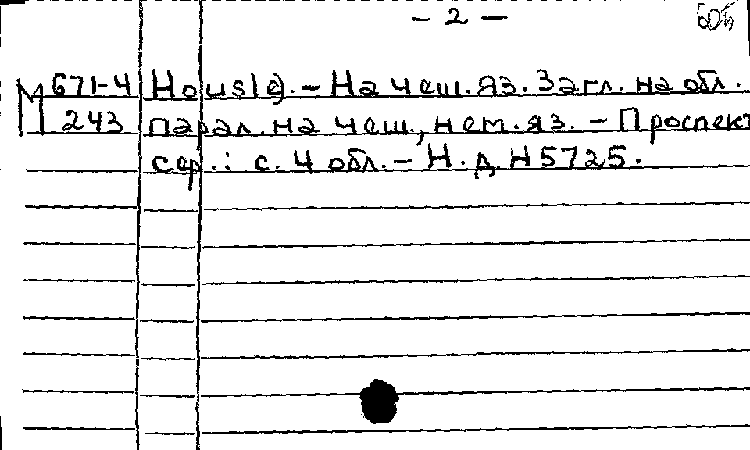 - 2 -
М 671-4 Housle). - На чеш. яз. Загл. на обл.
243 парал. на чеш., нем. яз. - Проспект
сер.: с. 4 обл. - Н. д. Н5725.